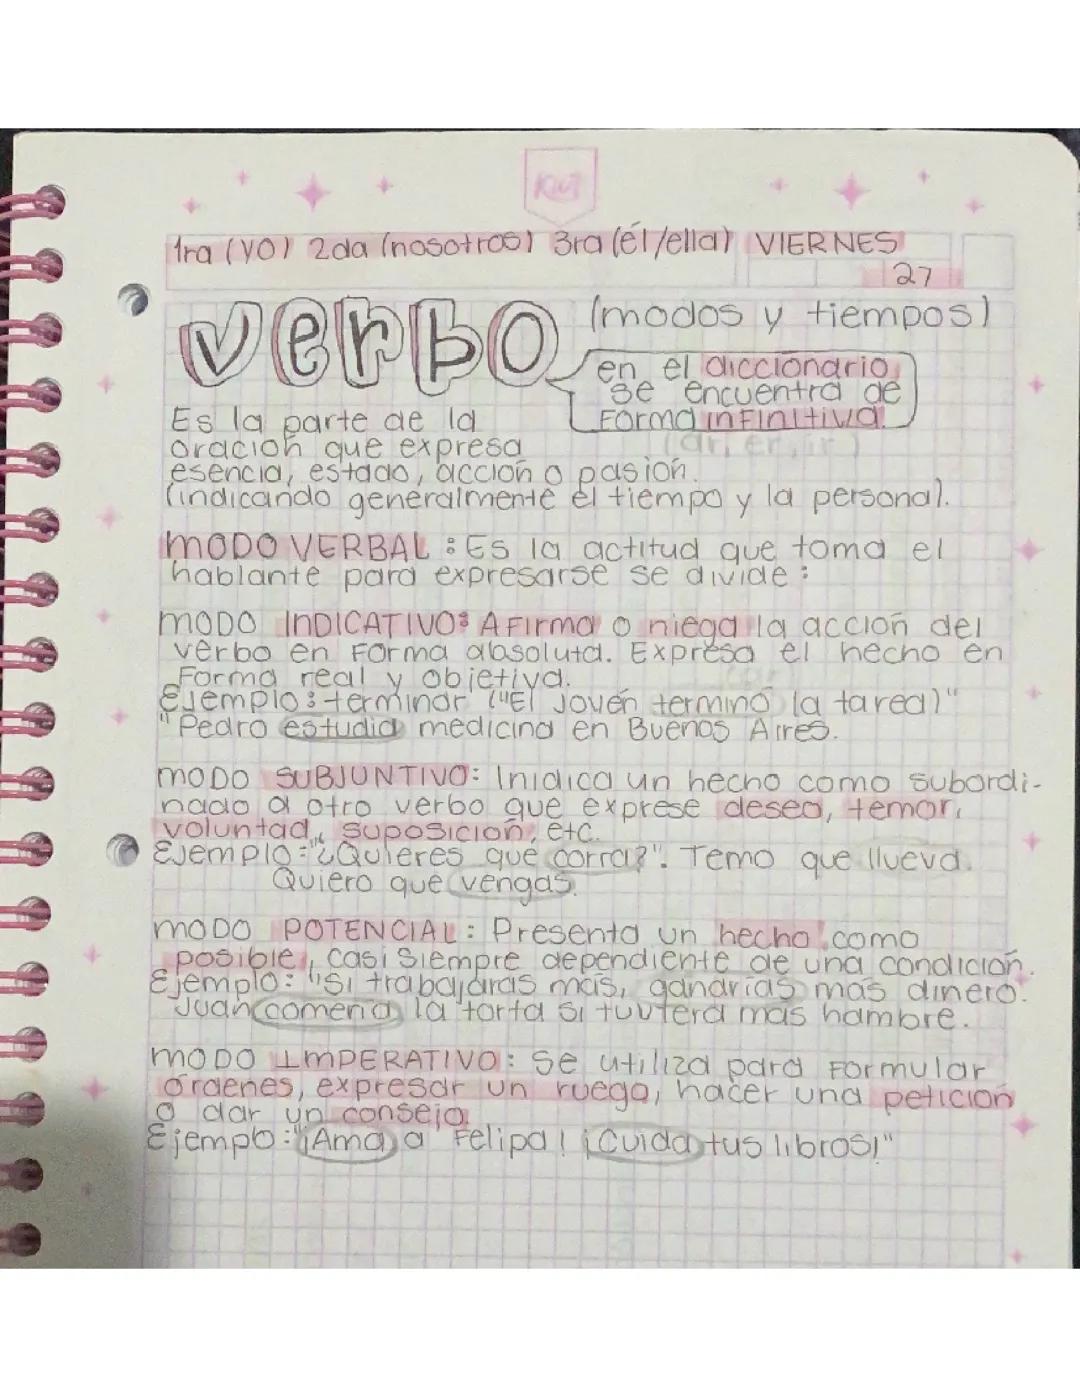 KWI
1ra (YO) 2da (nosotros) 3ra (él/ella) VIERNES
27
verbo (modos y tiempos)
en el diccionario
se encuentra de
Forma infinitiva
(ar, er, ir)
Es la parte de la
oración que expresa
esencia, estado, acción o pasión.
(indicando generalmente el tiempo y la persona).
MODO VERBAL: Es la actitud que toma el
hablante para expresarse se divide:
MODO INDICATIVO: Afirma o niega la acción del
verbo en Forma absoluta. Expresa el hecho en
Forma real y objetiva.
Ejemplo: terminar ("El joven terminó la tarea)"
"Pedro estudia medicina en Buenos Aires.
MODO SUBJUNTIVO: Inidica un hecho como subordi-
nado a otro verbo que exprese deseo, temor,
voluntad, suposición, etc.
Ejemplo: "¿Quieres que corra?". Temo que llueva.
Quiero que vengas.
MODO POTENCIAL: Presenta un hecho como
posible, casi siempre dependiente de una condición.
Ejemplo: "Si trabajaras más, ganarías más dinero.
Juan comería la torta si tuviera más hambre.
MODO IMPERATIVO: Se utiliza para Formular
órdenes, expresar un ruego, hacer una petición
o dar un consejo.
Ejemplo: "¡Ama a Felipa! ¡Cuida tus libros!"